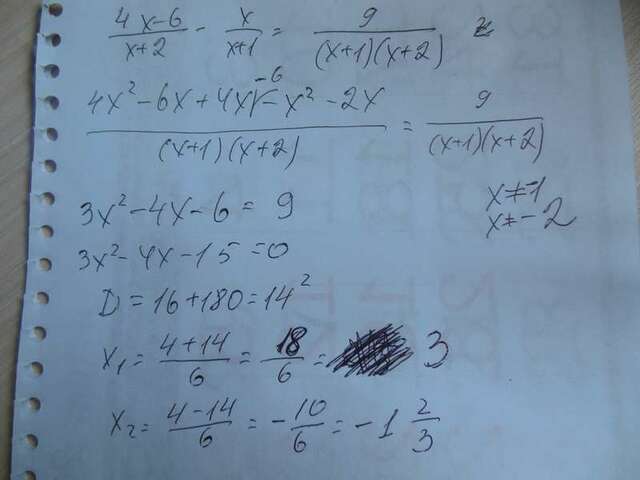 (4x-6)/(x+2) - x/(x+1) = 9/((x+1)(x+2))
(4x²-6x+4x-6-x²-2x)/((x+1)(x+2)) = 9/((x+1)(x+2))
3x²-4x-6=9
x≠-1
x≠-2
3x²-4x-15=0
D=16+180=14²
x₁=(4+14)/6=18/6=3
x₂=(4-14)/6=-10/6=-1 2/3